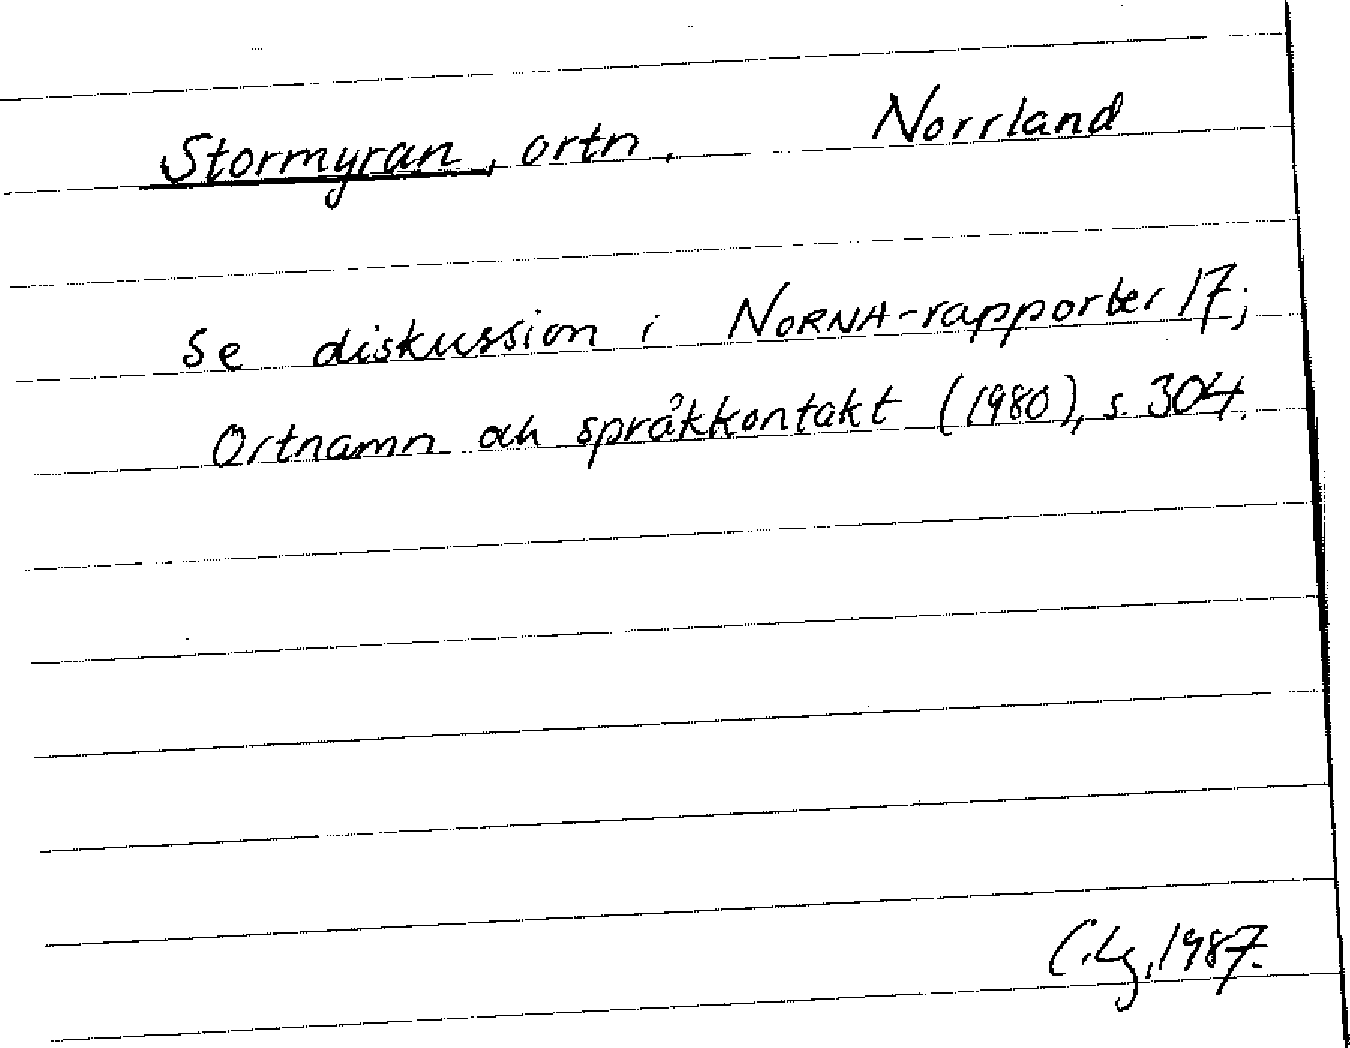 Stormyran, ortn. Norrland
Se diskussion i NORNA-rapporter 17;
Ortnamn och språkkontakt (1980), s. 304.
C.Lg, 1987.